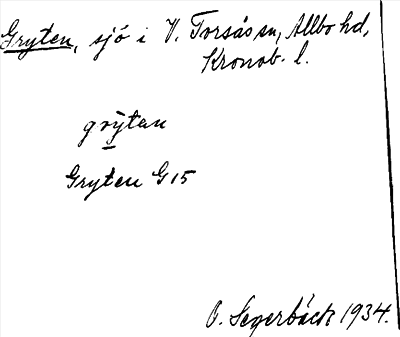 Gryten, sjö i V. Torsås sn, Allbo hd,
Kronob. l.
grỳtan
Gryten G 15
O. Segerbäck 1934.